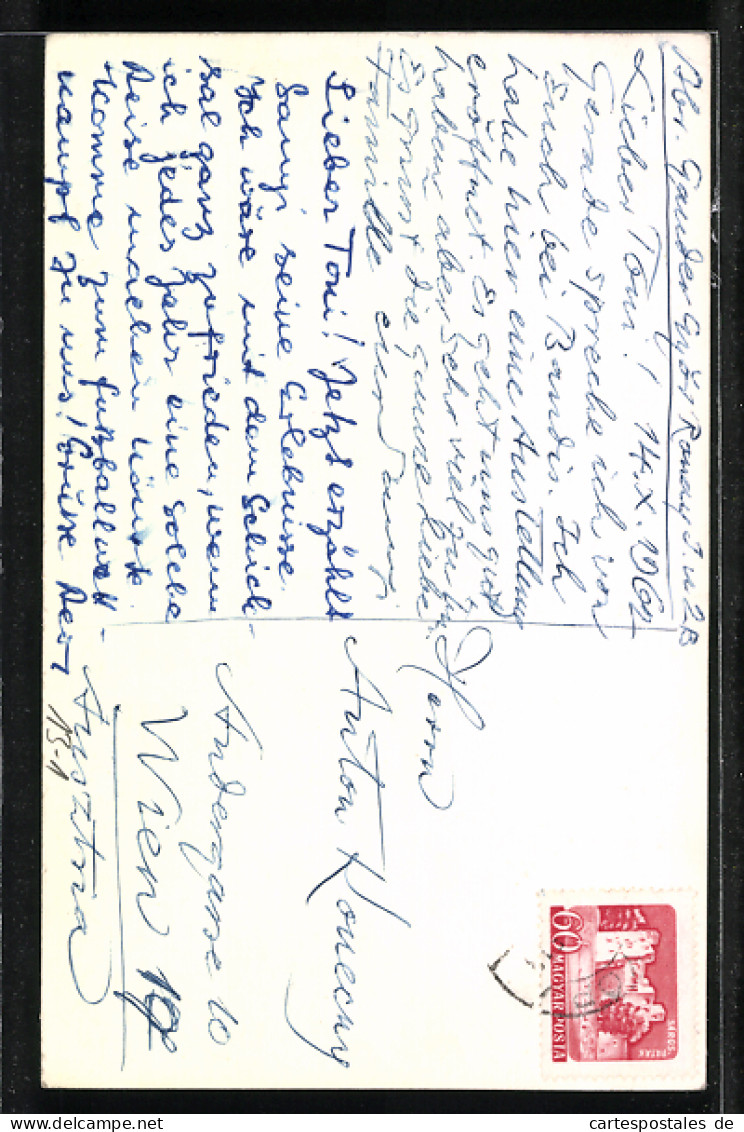 Abs. Gander Győr Rónay J. u. 2B
Lieber Toni! 14.X.1962
Gerade spreche ich von
Euch bei Bandis. Ich
habe hier eine Austellung
eröffnet. Es geht uns gut
haben aber sehr viel zu tun.
Es grüsst die ganze liebe
Familie euer Samyi
Lieber Toni! Jetzt erzählt
Samyi seine Erlebnisse.
Ich wäre mit dem Schick-
sal ganz zufrieden, wenn
ich jedes Jahr eine solche
Reise machen könnte.
Komme zum Fußballwett-
kampf zu uns! Grüsse
Herrn
Anton Konechy
Andergasse 10
Wien 17
Ausztria
15.1
60
MAGYAR POSTA
SÁROSPATAK
cartespostales.de